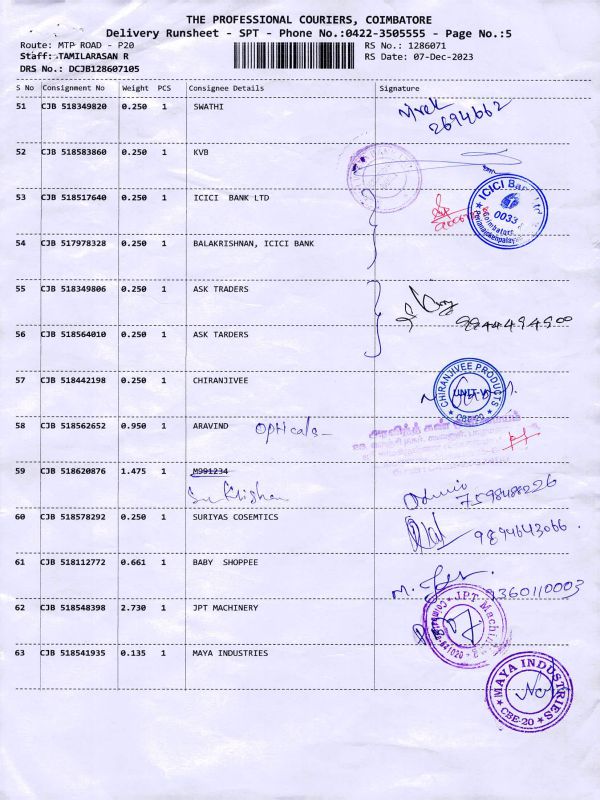 THE PROFESSIONAL COURIERS, COIMBATORE
Delivery Runsheet - SPT - Phone No.:0422-3505555 - Page No.:5
Route: MTP ROAD - P20 RS No.: 1286071
Staff: TAMILARASAN R RS Date: 07-Dec-2023
DRS No.: DCJB128607105
S No Consignment No Weight PCS Consignee Details Signature
51 CJB 518349820 0.250 1 SWATHI
2694662
52 CJB 518583860 0.250 1 KVB
53 CJB 518517640 0.250 1 ICICI BANK LTD
ICICI Bank
0033
Coimbatore
54 CJB 517978328 0.250 1 BALAKRISHNAN, ICICI BANK
55 CJB 518349806 0.250 1 ASK TRADERS
9244494900
56 CJB 518564010 0.250 1 ASK TARDERS
57 CJB 518442198 0.250 1 CHIRANJIVEE
CHIRANJIVEE PRODUCTS
UNIT-V
CBE-20
58 CJB 518562652 0.950 1 ARAVIND Opticals
அரவிந்த் கண்
59 CJB 518620876 1.475 1 M991234
7598488226
60 CJB 518578292 0.250 1 SURIYAS COSEMTICS
9894643066
61 CJB 518112772 0.661 1 BABY SHOPPEE
9360110003
62 CJB 518548398 2.730 1 JPT MACHINERY
JPT Machin
641020
63 CJB 518541935 0.135 1 MAYA INDUSTRIES
MAYA INDUSTRIES
CBE-20